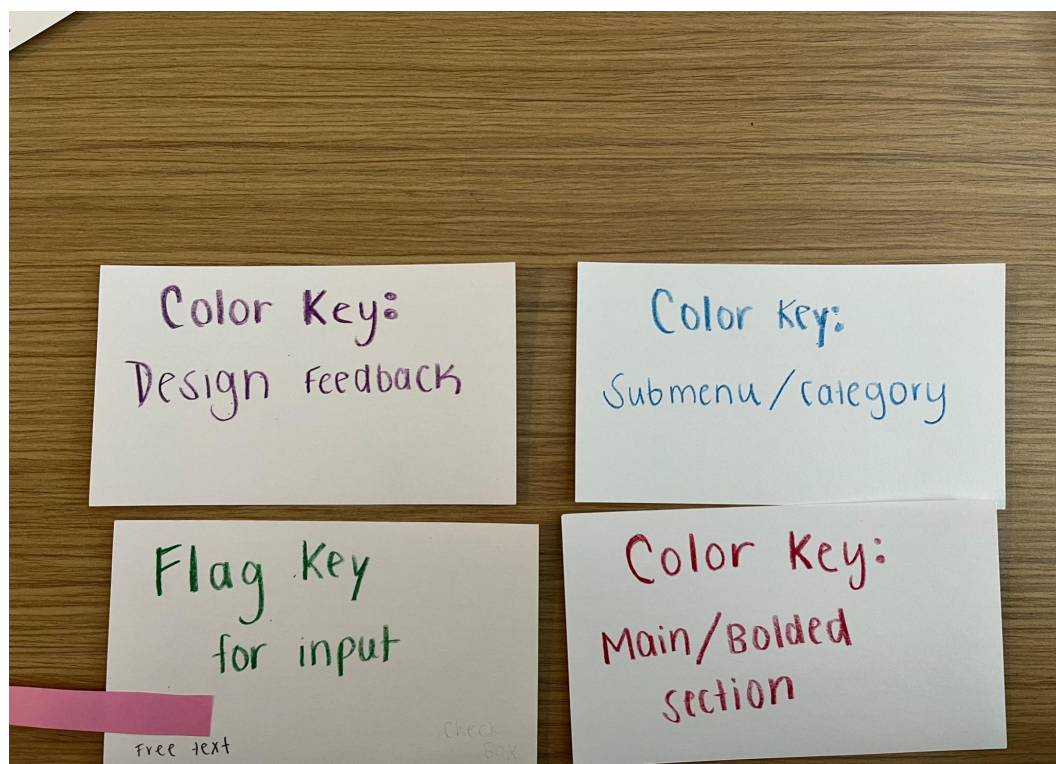 Color Key:
Design Feedback
Color Key:
Submenu/Category
Flag Key
for input
Free text
Check
Box
Color Key:
Main/Bolded
section